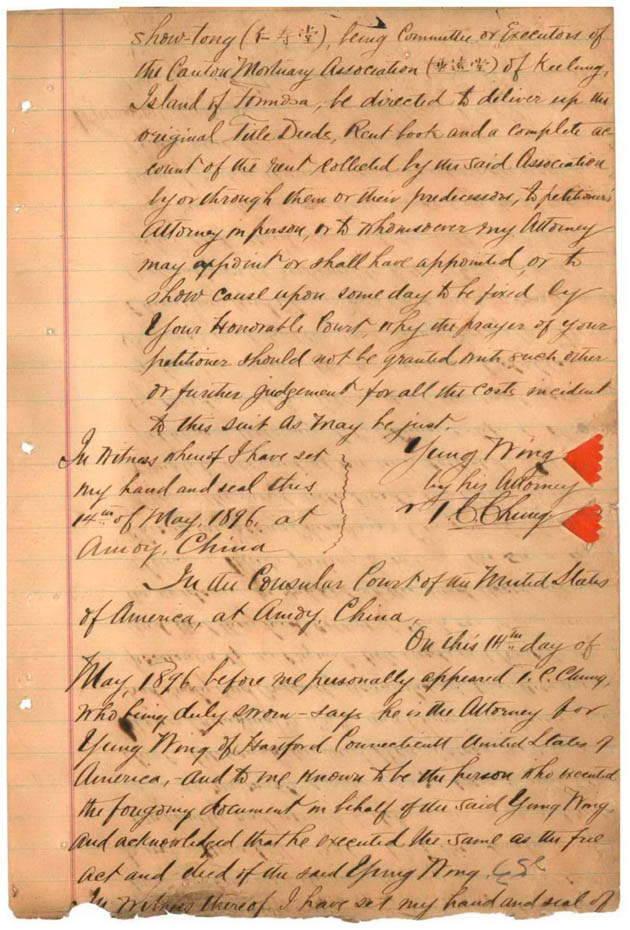 show-tong (仁寿堂), being Committee or Executors of
the Canton Mortuary Association (垂遠堂) of Keelung,
Island of Formosa, be directed to deliver up the
original Title Deeds, Rent book and a complete ac-
count of the rent collected by the said Association
by or through them or their predecessors, to petitioner's
Attorney in person, or to whomsoever my Attorney
may appoint or shall have appointed, or to
show cause upon some day to be fixed by
Your Honorable Court, why the prayer of your
petitioner should not be granted with such other
or further judgement for all the costs incident
to this suit as may be just.
In Witness whereof I have set
my hand and seal this
14th of May, 1896, at
Amoy, China
Yung Wing
by his Attorney
Y. C. Chung
In the Consular Court of the United States
of America, at Amoy, China,
On this 14th day of
May, 1896 before me personally appeared Y. C. Chung,
who being duly sworn - says he is the Attorney for
Yung Wing of Hartford Connecticutt United States of
America, - and to me known to be the person who executed
the foregoing document in behalf of the said Yung Wing,
and acknowledged that he executed the same as the free
act and deed of the said Yung Wing.
In Witness thereof I have set my hand and seal of